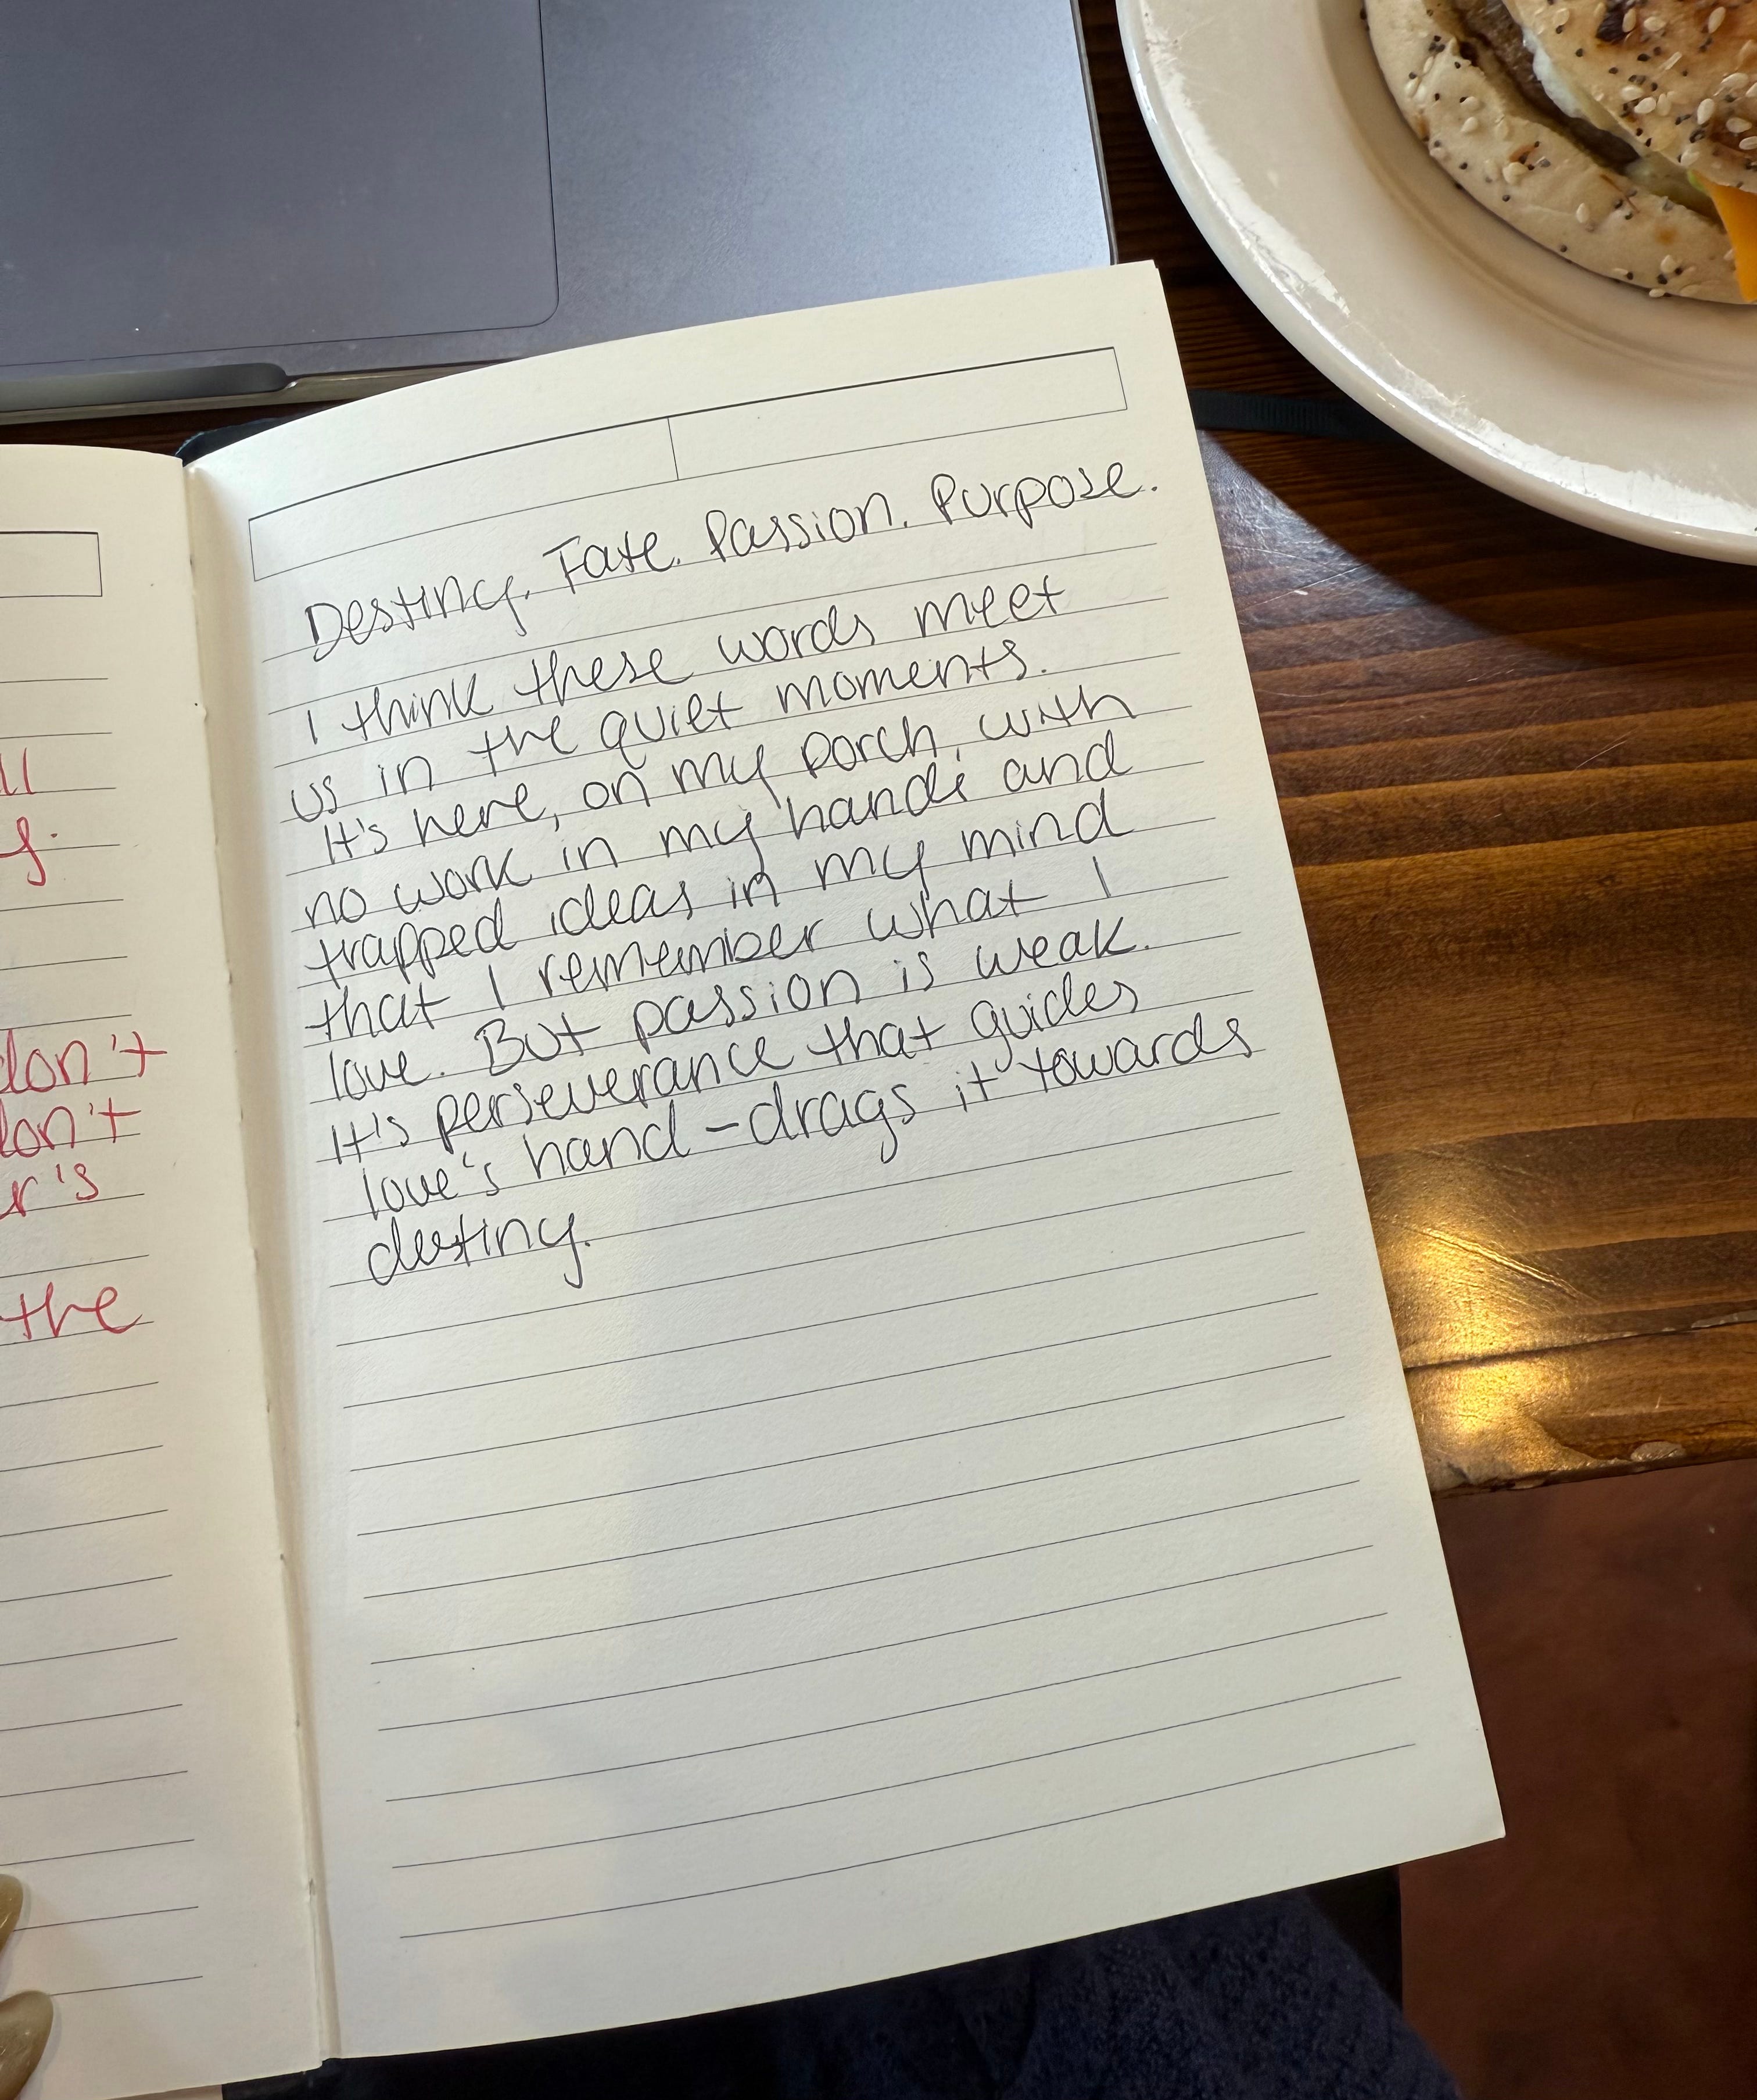 ll
y.
don't
don't
r's
the
Destiny. Fate. Passion. Purpose.
I think these words meet
us in the quiet moments.
It's here, on my porch, with
no work in my hands and
trapped ideas in my mind
that I remember what I
love. But passion is weak.
It's perseverance that guides
love's hand - drags it towards
destiny.